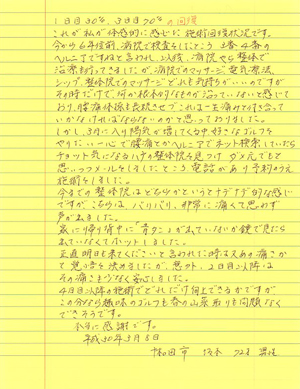 1日目30%、3日目70%の回復
これが私が体感的に感じた施術回復状況です。
今から6年程前、病院で検査をしたところ3番4番の
ヘルニアですねと言われ、以後、病院やら整体で
治療を行ってきましたが、病院でのマッサージ、電気療法、
シップ、整体院でのマッサージどれも気持ちがいいのですが
その時だけで、何か根本的なものが治っていないと感じて
おり、腰痛体操を長続きせずこれは一生痛みと付き合って
いかなければならないのかと思っておりました。
しかし、3月に入り陽気が増してくる中好きなゴルフを
やりたい一心で腰痛とかヘルニアでネット検索していたら
チョット気になるハナの整体院を見つけ ダメ元でもと
思いつつメールをしましたところ電話があり予約のうえ
施術をしました。
今までの整体院はどちらかというとナデナデ的な感じ
ですが、こちらは、バリバリ、非常に痛くて思わず
声が出ました。
家に帰り背中に「青タン」が出ていないか鏡で見たら
出ていなくてホットしました。
正直明日も来てくださいと言われた時はえあの痛さか
と覚悟を決めましたが、思の外、2日目以降は
その痛さも少なく安心しました。
4日目以降の施術でどれだけ向上できるかですが
この分なら趣味のゴルフも春の山菜取りも問題なく
できそうです。
本当に感謝です。
平成30年3月8日
和田市 男性